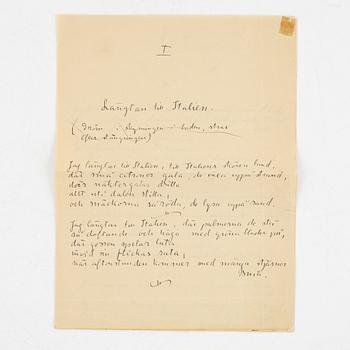 I
Längtan till Italien.
(Dröm i skymningen i baden, strax
efter
Jag längtar till Italien, till Italiens sköna land,
där små citroner gula, de växa uppå strand,
där näktergalar drilla
allt uti dalen stilla,
och snäckorna så röda, de lysa uppå sand.
Jag längtar till Italien, där palmerna de stå
så doftande och höga med gröna blader på,
där gossen spelar luta
invid sin flickas ruta,
när aftonstunden kommer med många stjärnor
små.